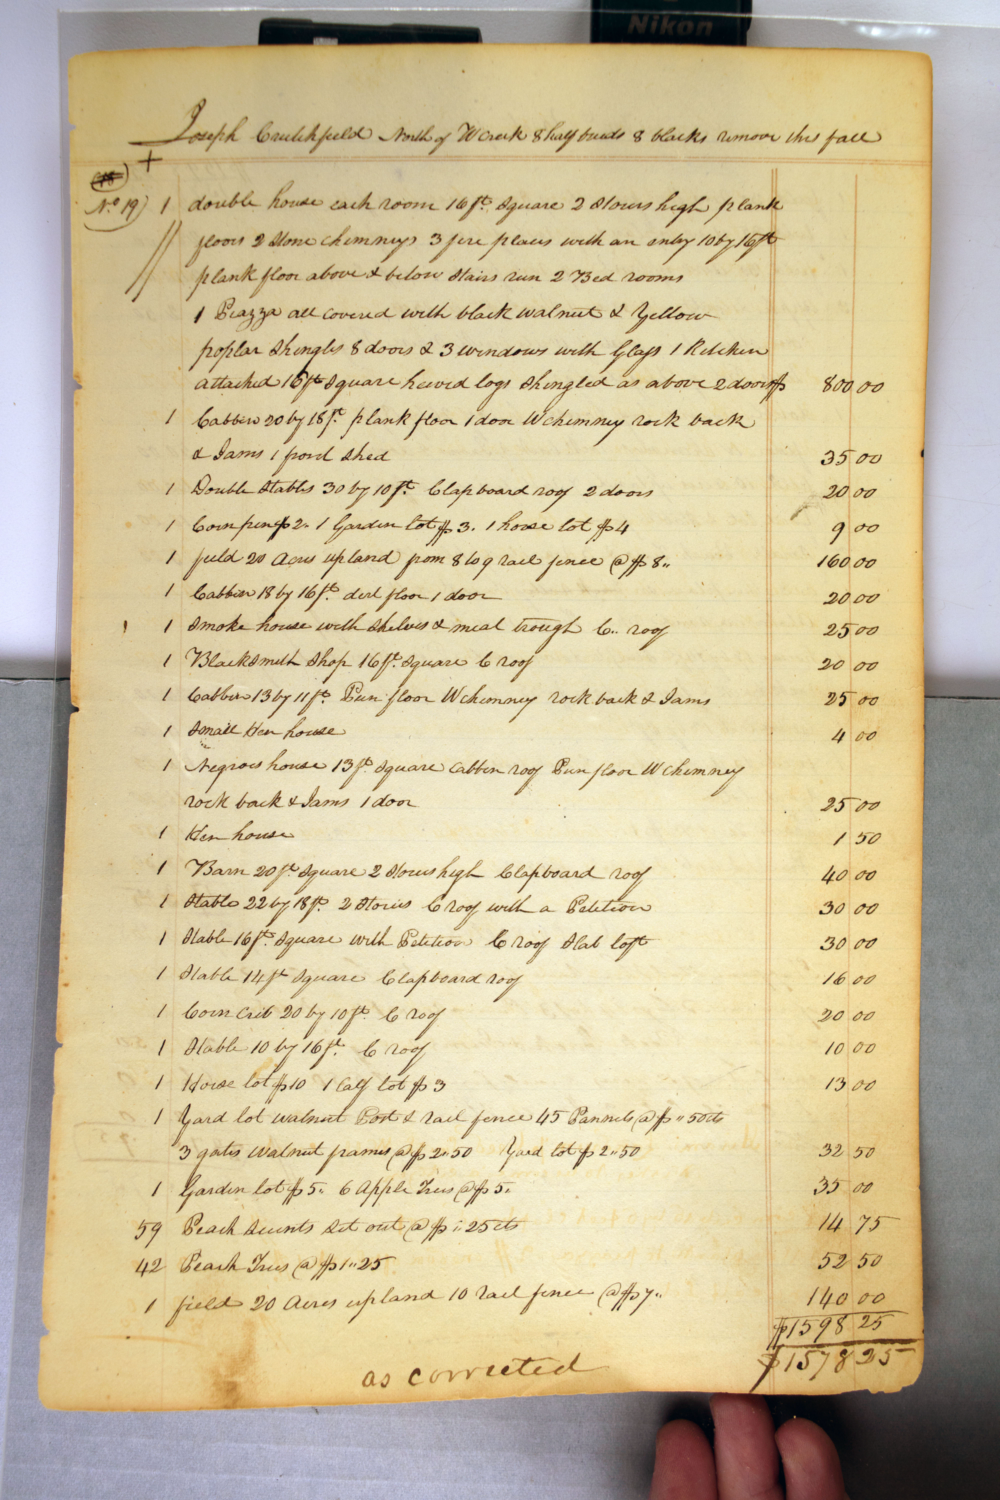 Nikon
Joseph Crutchfield North of W Creek 8 half breeds 8 blacks remove this fall
+
No 19) 1 double house each room 16 ft. Square 2 Stories high plank
floors 2 Stone chimneys 3 fire places with an entry 10 by 16 ft
plank floor above & below Stairs run 2 Bed rooms
1 Piazza all covered with black walnut & Yellow
poplar Shingles 8 doors & 3 windows with Glass 1 Kitchen
attached 16 ft Square hewed logs Shingled as above 2 doors $ 800 00
1 Cabbin 20 by 18 ft. plank floor 1 door W chimney rock back
& Jams 1 front Shed 35 00
1 Double Stables 30 by 10 ft. Clapboard roof 2 doors 20 00
1 Corn pen $2.. 1 Garden lot $3. 1 horse lot $4 9 00
1 field 20 Acres upland from 8 to 9 rail fence @ $8.. 160 00
1 Cabbin 18 by 16 ft. dirt floor 1 door 20 00
1 Smoke house with Shelves & meal trough C.. roof 25 00
1 Blacksmith Shop 16 ft. Square C roof 20 00
1 Cabbin 13 by 11 ft. Pun floor W chimney rock back & Jams 25 00
1 Small Hen house 4 00
1 Negroes house 13 ft. Square Cabbin roof Pun floor W Chimney
rock back & Jams 1 door 25 00
1 Hen house 1 50
1 Barn 20 ft Square 2 Stories high Clapboard roof 40 00
1 Stable 22 by 18 ft. 2 Stories C roof with a Petition 30 00
1 Stable 16 ft. Square with Petition C roof Slab loft 30 00
1 Stable 14 ft Square Clapboard roof 16 00
1 Corn Crib 20 by 10 ft. C roof 20 00
1 Stable 10 by 16 ft. C roof 10 00
1 Horse lot $10 1 Calf lot $3 13 00
1 Yard lot walnut Post & rail fence 45 Pannels @ $..50cts
3 gates walnut frames @ $2..50 Yard lot $2..50 32 50
1 Garden lot $5.. 6 Apple Trees @ $5.. 35 00
59 Peach Scients Set out @ $..25cts 14 75
42 Peach Trees @ $1..25 52 50
1 field 20 Acres upland 10 rail fence @ $7.. 140 00
$1598 25
$1578 25
as corrected